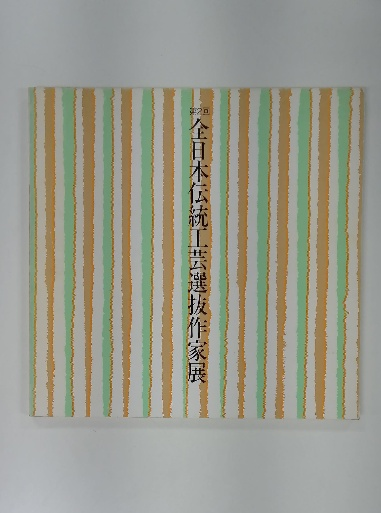 第2回
全日本伝統工芸選抜作家展